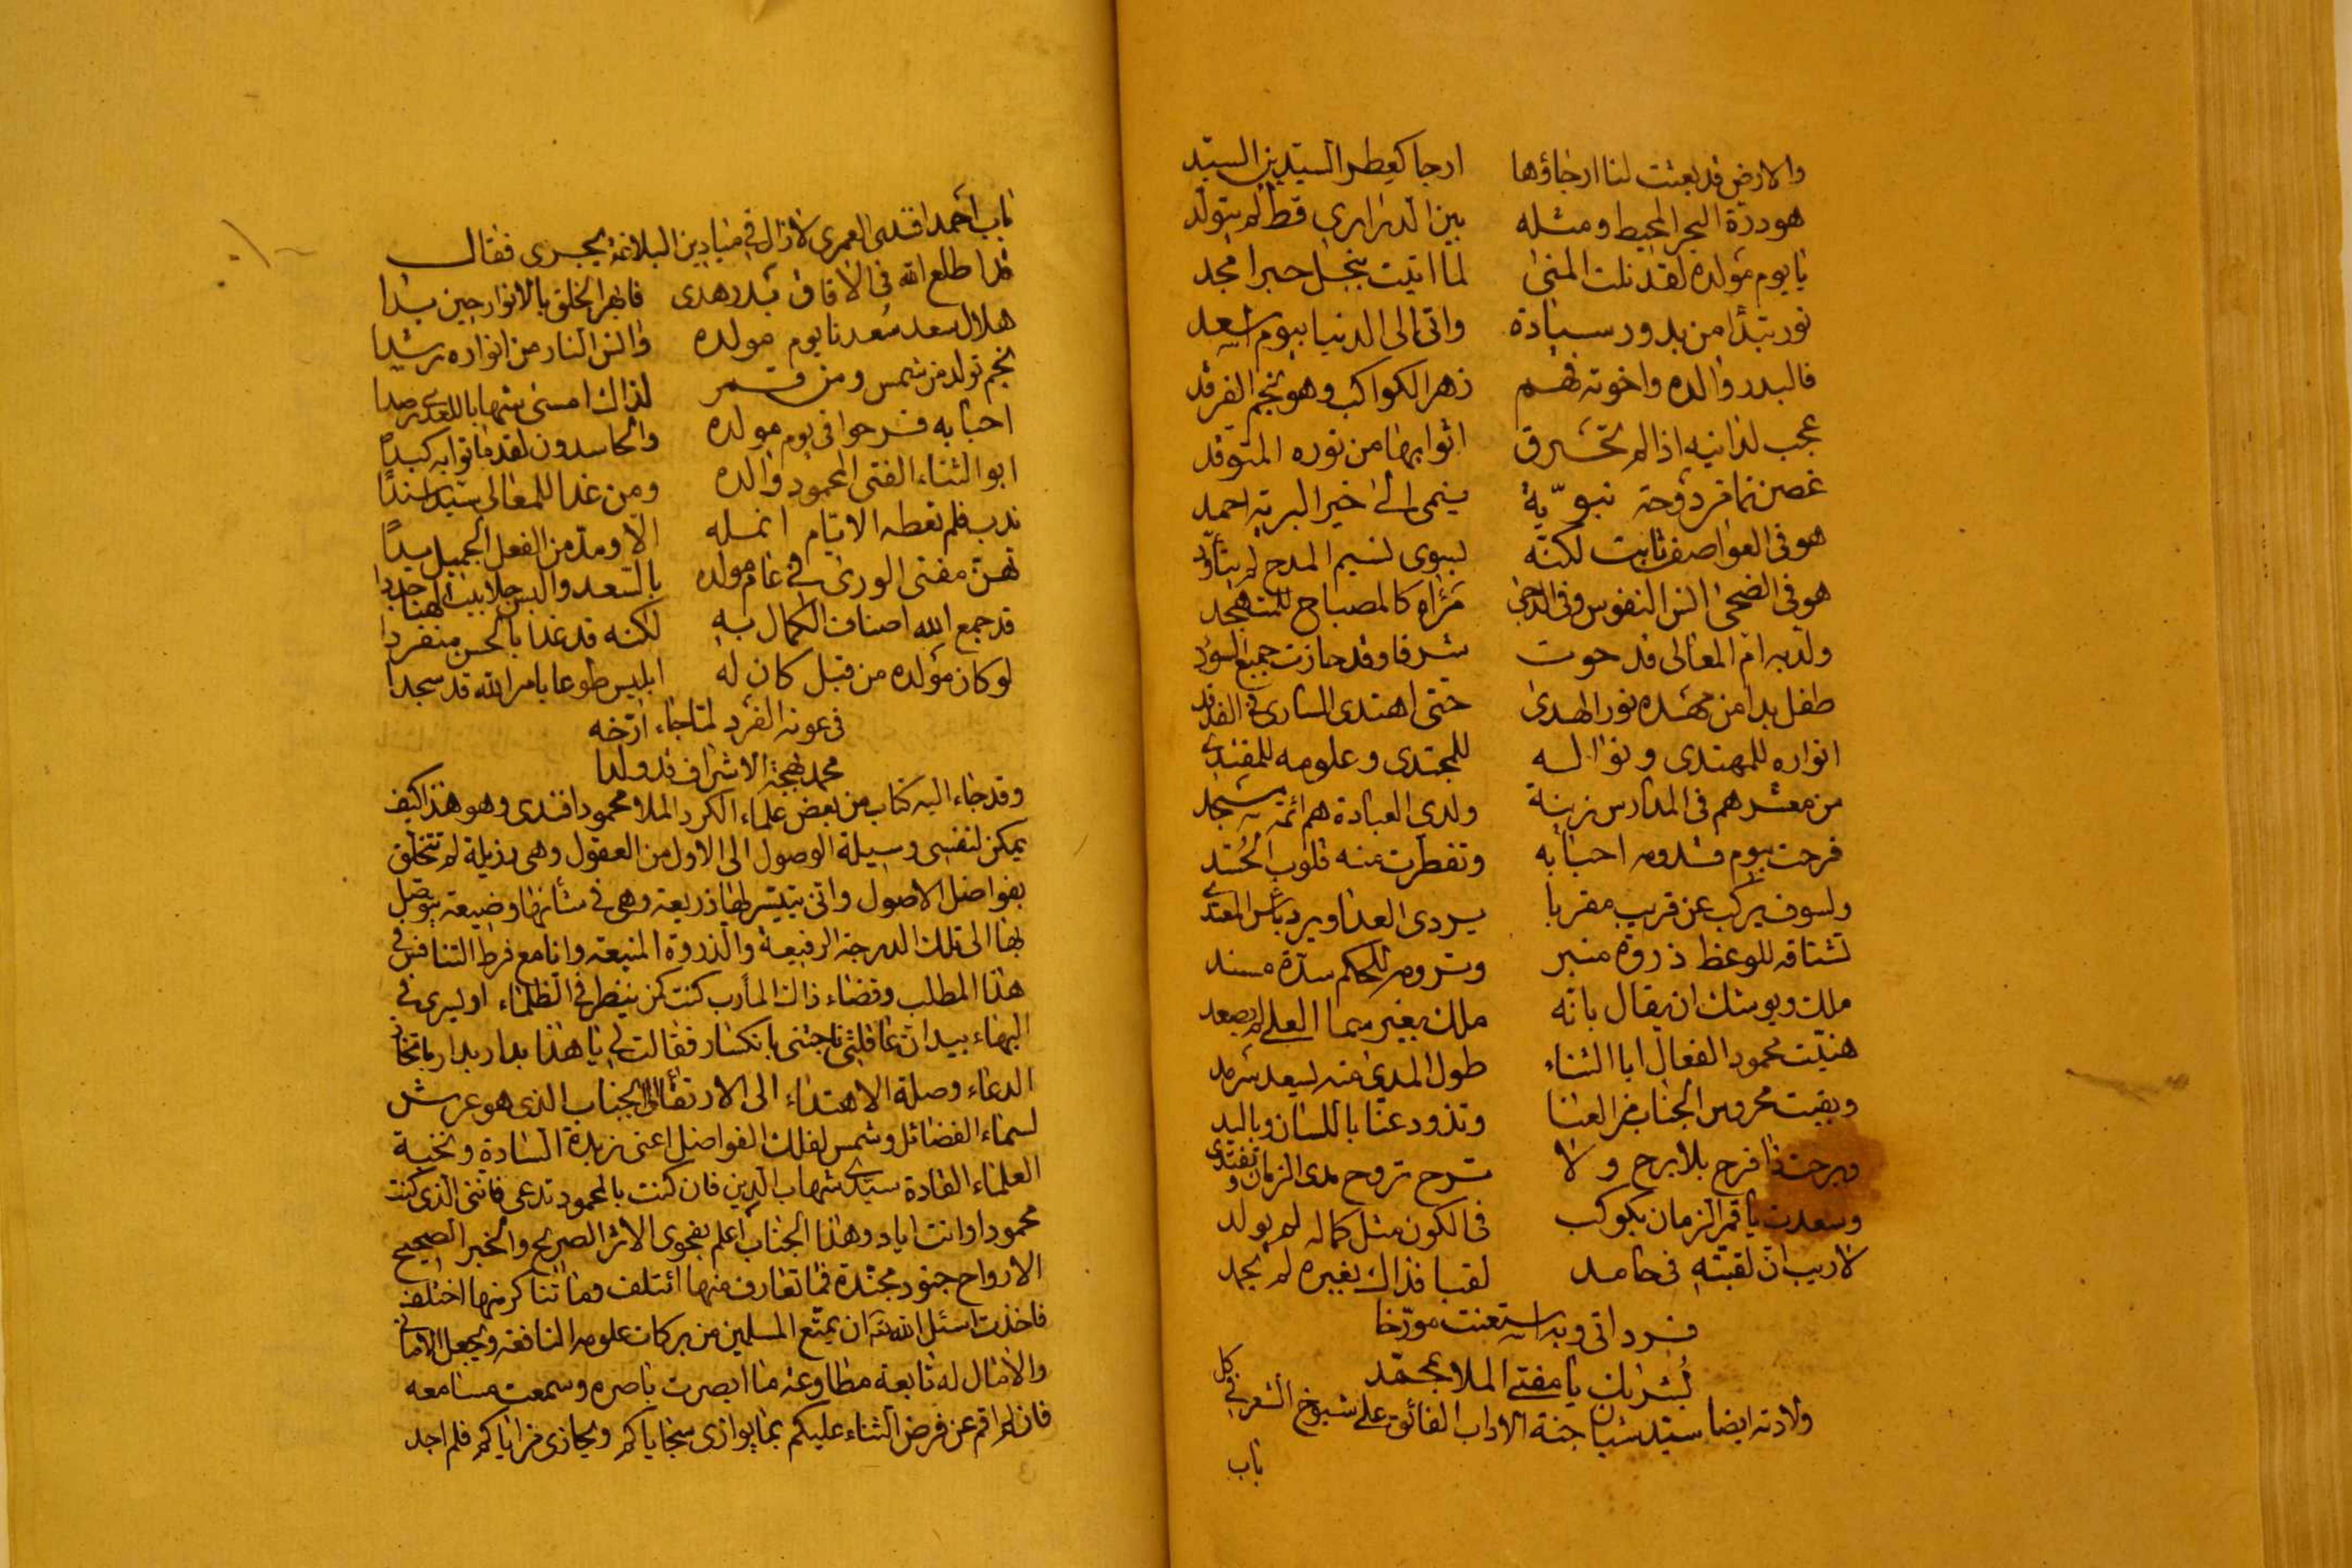 والارض قد بعثت لنا ارجاؤها ارجا كعطر السيد بن السيد
هو درة البحر المحيط ومثله بين الدراري قط لم يتولد
يا يوم مولده لقد نلت المنى لما اتيت بنجل حبر امجد
نور تبدّا من بدور سيادة واتى الى الدنيا بيوم اسعد
فالبدر والده واخوته فهم زهر الكواكب وهو نجم الفرقد
عجب لدانيه اذا لم تحترق اثوابها من نوره المتوقد
غصن نما فرد دوحة نبوّية ينمى الى خير البرية احمد
هو في العواصف ثابت لكنّه لسوى نسيم المدح لم يتأوّد
هو في الضحى انس النفوس وفي الدجى مرآه كالمصباح للمتهجد
ولدته ام المعالى قد حوت شرفا وقد حازت جميع السؤدد
طفل بدا من مهده نور الهدى حتى اهتدى السارى في الفدفد
انواره للمهتدى ونواله للمجتدى وعلومه للمقتدي
من معشر هم فى المدارس زينة ولدى العبادة هم ائمة مسجد
فرحت بيوم قدومه احبابه وتفطرت منه قلوب الحُسّد
ولسوف يركب عن قريب مقربا يردى العدا ويرد باس المعتدي
تشتاقه للوعظ ذروة منبر وترومه للحكم سدة مسند
ملك ويوشك ان يقال بانّه ملك بغير سما العلى لم يصعد
هنيّت محمود الفعال ابا الثناء طول المدى منه بسعد سرمد
وبقيت محروس الجناب من العنا وتذود عنا باللسان وباليد
وبرحت ذا فرح بلا برح ولا ترح تروح مدى الزمان وتغتدى
وسعدت يا قمر الزمان بكوكب فى الكون مثل كماله لم يولد
لا ريب ان لقبتهِ فى حامد لقبا فذاك بغيره لم يحمد
فرد اتى وبه استعنت مورّخا
بُشراك يا مفتى الملا بمحمّد
ولادته ايضا سيد شبان جنة الاداب الفائق على شيوخ الشعر في كل
باب
باب احمد افندى العمرى لا زال في ميادين البلاغة يجرى فقال
قد اطلع الله فى الافاق بدر هدى فابهر الخلق بالانوار حين بدا
هلال سعد سُعدنا يوم مولده وانس النار من انواره رشدا
نجم تولد من شمس ومن قمر لذاك امسى شهابا للعدى رصدا
احبابه فرحوا فى يوم مولده والحاسدون لقد ماتوا به كبدًا
ابو الثناء الفتى المحمود والده ومن غدا للمعالى سيدا سندًا
ندب فلم تعطه الايّام انمله الّا ومدّ من الفعل الجميل يدًا
تهنّ مفتى الورى في عام مولده بالسّعد والبس جلابيب الهنا جددا
قد جمع الله اصناف الكمال بهِ لكنه قد غدا بالحسن منفردا
لو كان مولده من قبل كان له ابليس طوعا بامر الله قد سجدا
فى عونه الفرد لمّا جاء ارّخه
محمد بهجة الاشراف قد ولدا
وقد جاء اليه كتاب من بعض علماء الكرد الملا محمود افندى وهو هذا كيف
يمكن لنفسى وسيلة الوصول الى الاول من العقول وهى رذيلة لم تتخلق
بفواضل الاصول واتى يتيسر لها ذريعة وهى في شأنها وضيعة يتوصل
بها الى تلك الدرجة الرفيعة والذروة المنيعة وانا مع فرط التنافس في
هذا المطلب وقضاء ذاك المأرب كنت كمن ينظر في الظلماء او يسرى في
البهماء بيد ان عاقلتى ناجتنى بانكسار فقالت لي يا هذا بدار بدار باتخاذ
الدعاء وصلة الاهتداء الى الارتقاء الى الجناب الذى هو عرش
لسماء الفضائل وشمس لفلك الفواضل اعنى زبدة السادة ونخبة
العلماء القادة سيدى شهاب الدين فان كنت بالمحمود تدعى فاننى الذى كنت
محمودا وانت اياد وهذا الجناب اعلم بفحوى الاثر الصريح والخبر الصحيح
الارواح جنود مجندة فما تعارف منها ائتلف وما تناكر منها اختلف
فاخذت اسئل الله ان يمتّع المسلمين من بركات علومه النافعة ويجعل الامانى
والامال له تابعة مطاوعة ما ابصرت باصره وسمعت مسامعه
فان لم اقم عن فرض الثناء عليكم بما يوازى سجاياكم ويحاذى مزاياكم فلم اجد